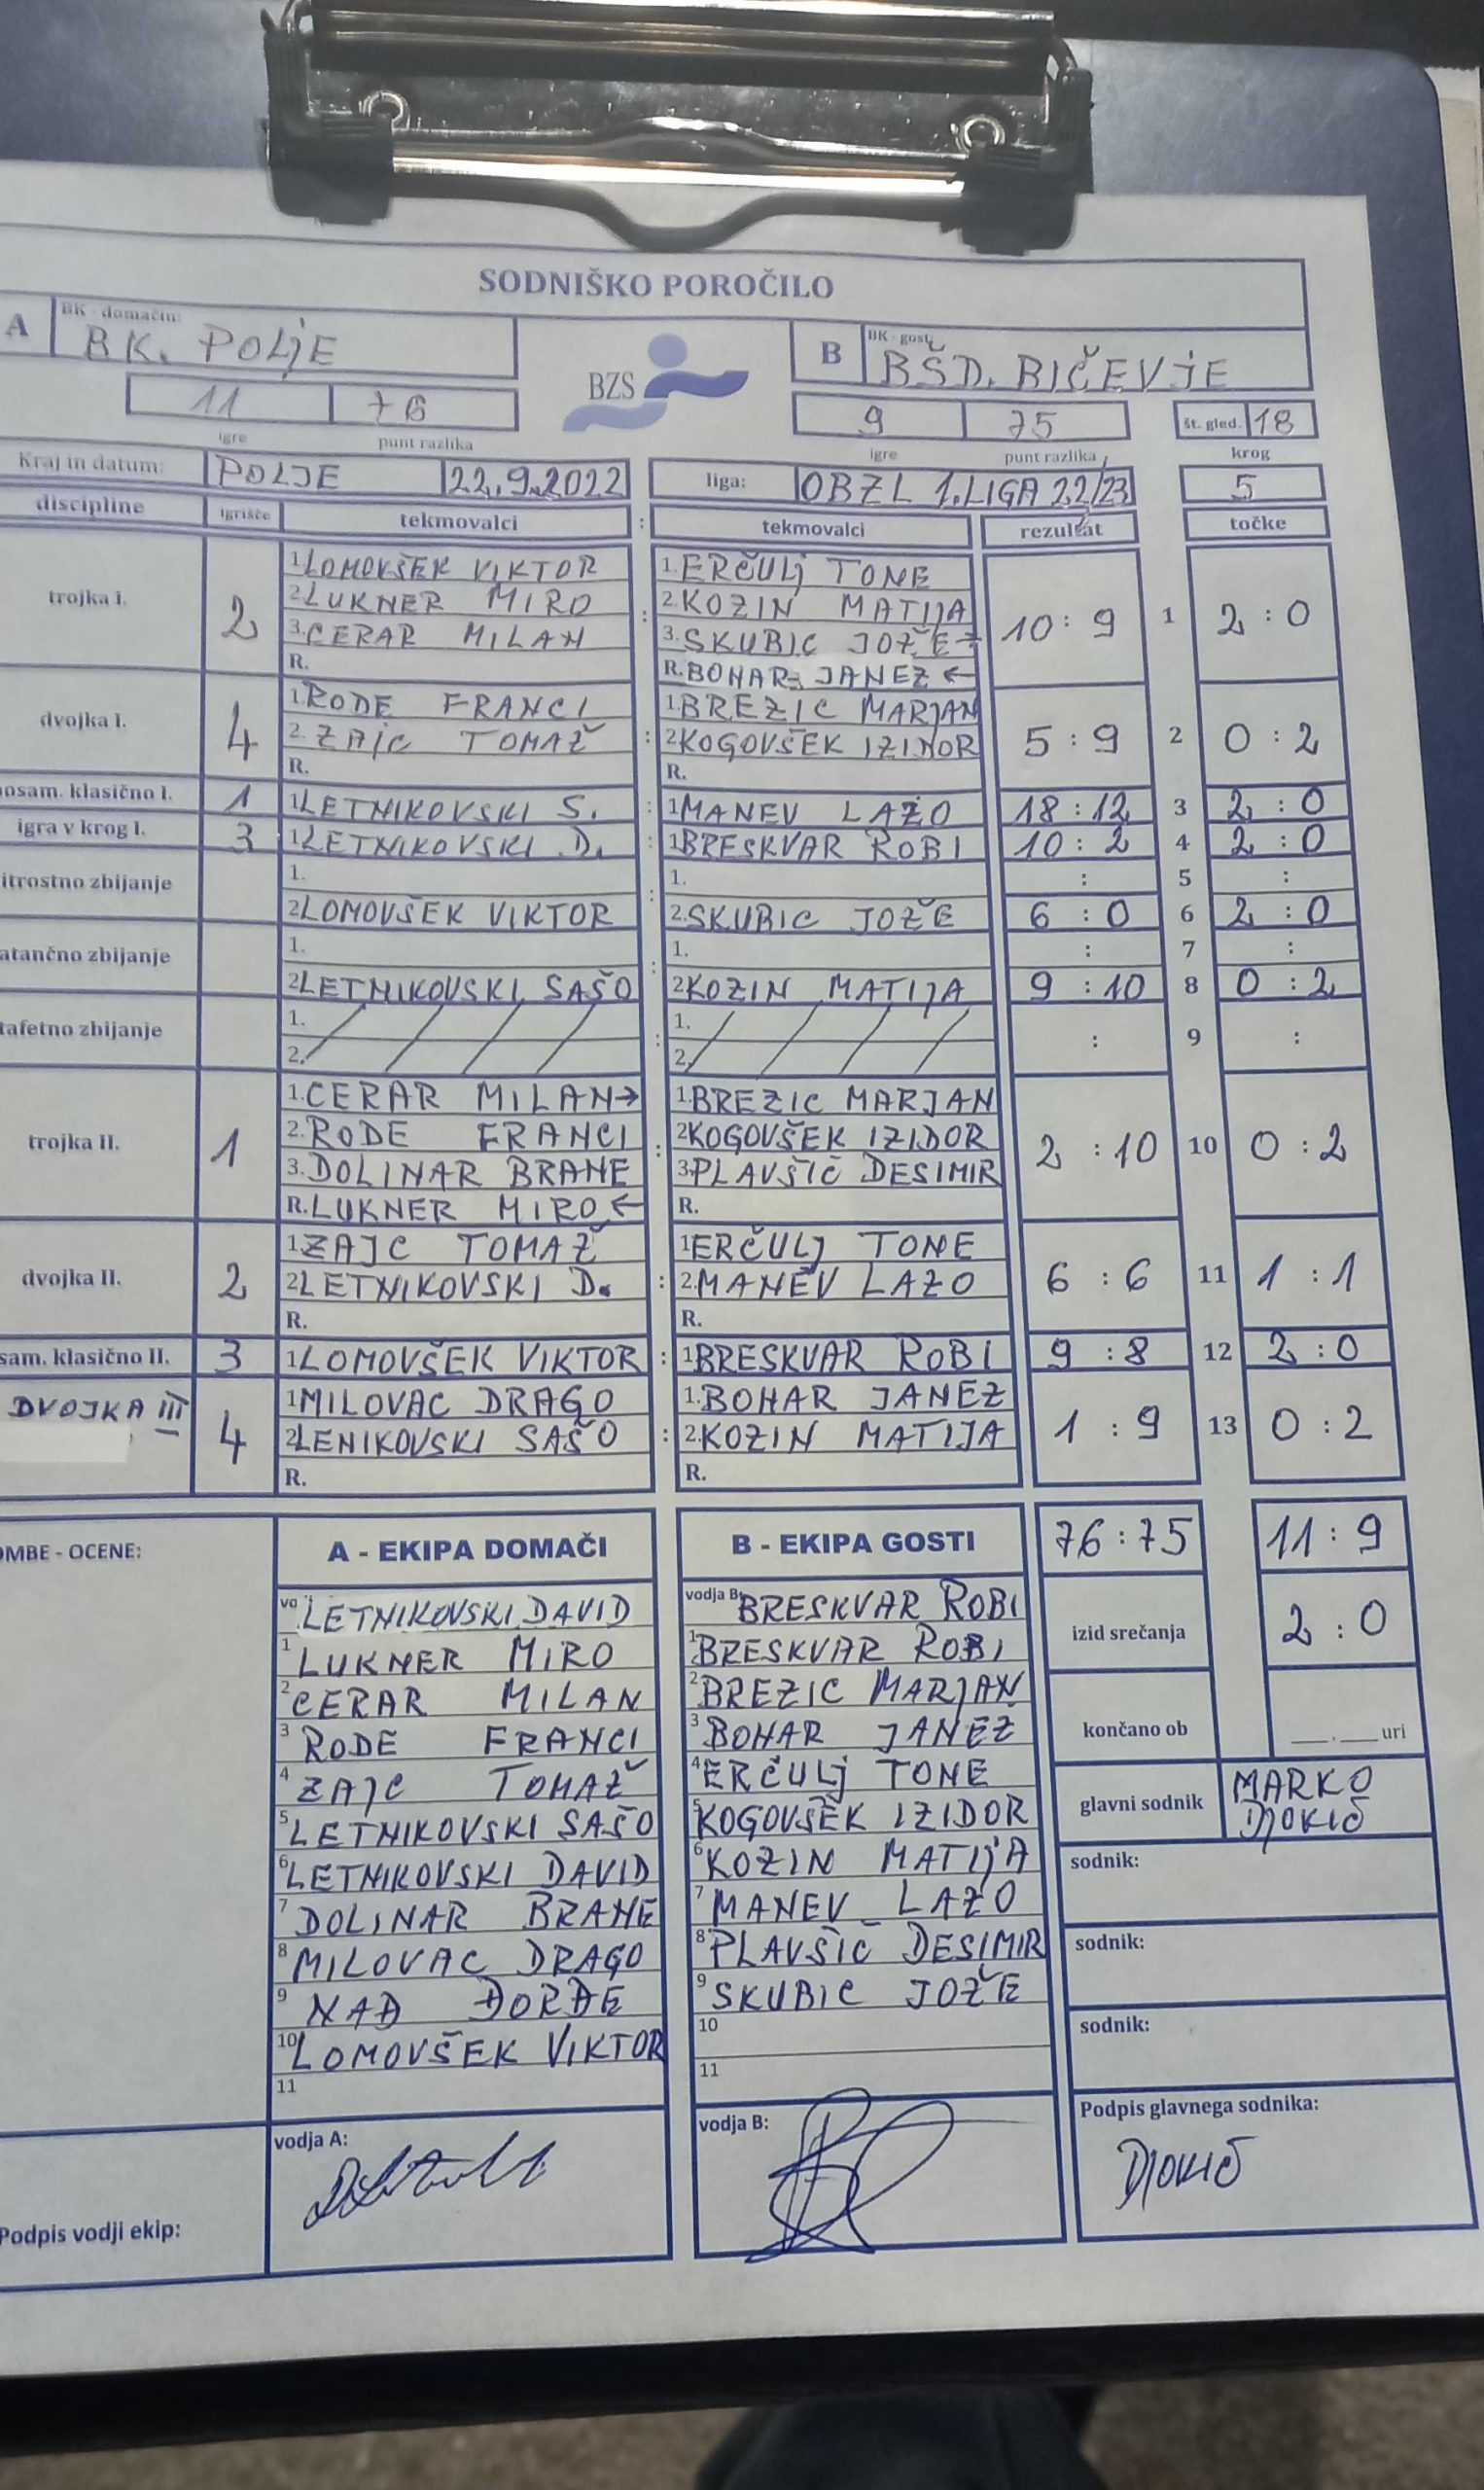 SODNIŠKO POROČILO
A BK - domačin: BK. POLJE BZS B BK - gost: BŠD. BIČEVJE
11 76 9 75 št. gled. 18
igre punt razlika igre punt razlika krog
Kraj in datum: POLJE 22.9.2022 liga: OBZL 1.LIGA 22/23 5
discipline igrišče tekmovalci : tekmovalci rezultat točke
trojka I. 2 : 10 : 9 1 2 : 0
1. LOMOVŠEK VIKTOR 1. ERČULJ TONE
2. LUKNER MIRO 2. KOZIN MATIJA
3. CERAR MILAN 3. SKUBIC JOŽE →
R. R. BOHAR JANEZ ←
dvojka I. 4 : 5 : 9 2 0 : 2
1. RODE FRANCI 1. BREZIC MARJAN
2. ZAJC TOMAŽ 2. KOGOVŠEK IZIDOR
R. R.
posam. klasično I. 1 1. LETNIKOVSKI S. : 1. MANEV LAZO 18 : 12 3 2 : 0
igra v krog I. 3 1. LETNIKOVSKI D. : 1. BRESKVAR ROBI 10 : 2 4 2 : 0
itrostno zbijanje 1. : 1. : 5 :
2. LOMOVŠEK VIKTOR 2. SKUBIC JOŽE 6 : 0 6 2 : 0
atančno zbijanje 1. : 1. : 7 :
2. LETNIKOVSKI SAŠO 2. KOZIN MATIJA 9 : 10 8 0 : 2
tafetno zbijanje 1. : 1. : 9 :
2. 2.
trojka II. 1 : 2 : 10 10 0 : 2
1. CERAR MILAN → 1. BREZIC MARJAN
2. RODE FRANCI 2. KOGOVŠEK IZIDOR
3. DOLINAR BRANE 3. PLAVŠIČ DESIMIR
R. LUKNER MIRO ← R.
dvojka II. 2 : 6 : 6 11 1 : 1
1. ZAJC TOMAŽ 1. ERČULJ TONE
2. LETNIKOVSKI D. 2. MANEV LAZO
R. R.
sam. klasično II. 3 1. LOMOVŠEK VIKTOR : 1. BRESKVAR ROBI 9 : 8 12 2 : 0
DVOJKA III 4 : 1 : 9 13 0 : 2
1. MILOVAC DRAGO 1. BOHAR JANEZ
2. LENIKOVSKI SAŠO 2. KOZIN MATIJA
R. R.
OMBE - OCENE: A - EKIPA DOMAČI B - EKIPA GOSTI 76 : 75 11 : 9
vo LETNIKOVSKI DAVID vodja B: BRESKVAR ROBI izid srečanja 2 : 0
1 LUKNER MIRO 1 BRESKVAR ROBI
2 CERAR MILAN 2 BREZIC MARJAN
3 RODE FRANCI 3 BOHAR JANEZ končano ob __.__ uri
4 ZAJC TOMAŽ 4 ERČULJ TONE glavni sodnik MARKO DJOKIČ
5 LETNIKOVSKI SAŠO 5 KOGOVŠEK IZIDOR
6 LETNIKOVSKI DAVID 6 KOZIN MATIJA sodnik:
7 DOLINAR BRANE 7 MANEV LAZO
8 MILOVAC DRAGO 8 PLAVŠIČ DESIMIR sodnik:
9 NAĐ ĐORĐE 9 SKUBIC JOŽE
10 LOMOVŠEK VIKTOR 10 sodnik:
11 11
Podpis vodji ekip: vodja A: vodja B: Podpis glavnega sodnika:
DJOKIČ